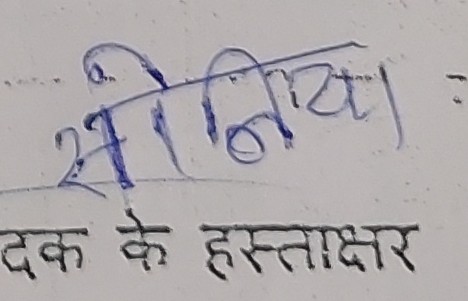 सोनिया
दक के हस्ताक्षर